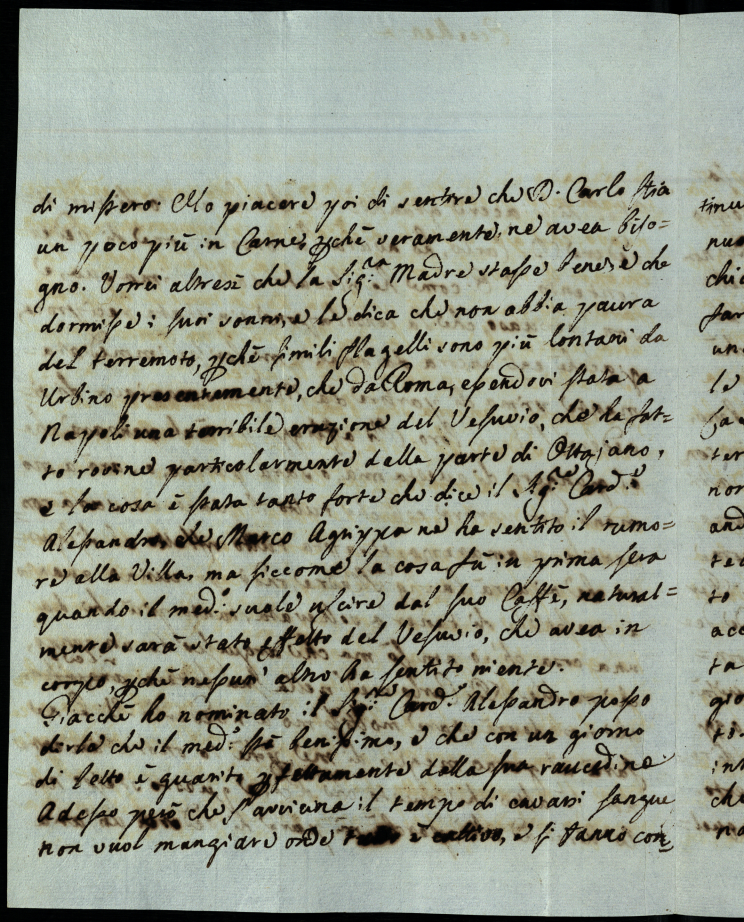 di mistero. Ho piacere poi di sentire che D. Carlo stia
un poco più in Carne, pchè veramente ne avea biso=
gno. Vorrei altresì che la Sig.ra Madre stasse bene, è che
dormisse i suoi sonni, e le dica che non abbia paura
del terremoto, pchè simili flagelli sono più lontani da
Urbino presentemente, che da Roma, essendovi stata a
Napoli una terribile eruzione del Vesuvio, che ha fat=
to rovine particolarmente dalla parte di Ottajano,
e la cosa è stata tanto forte che dice il Sig.re Card.e
Alessandro, che Marco Agrippa ne ha sentito il rumo=
re alla Villa, ma siccome la cosa fù in prima sera
quando il med.o suole uscire dal suo Caffè, natural=
mente sarà stato effetto del Vesuvio, che avea in
corpo, pchè nessun' altro ha sentito niente.
Giacchè ho nominato il Sig.re Card.e Alessandro posso
dirle che il med.o stà benissimo, e che con un giorno
di letto è guarito pfettamente dalla sua raucedine.
Adesso però che s'avvicina il tempo di cavarsi sangue
non vuol mangiare onde è cattivo, e si fanno con=
tinu
nuo
chi
far
una
le
ter
non
and
to
acc
ta
gio
to
int
che
na